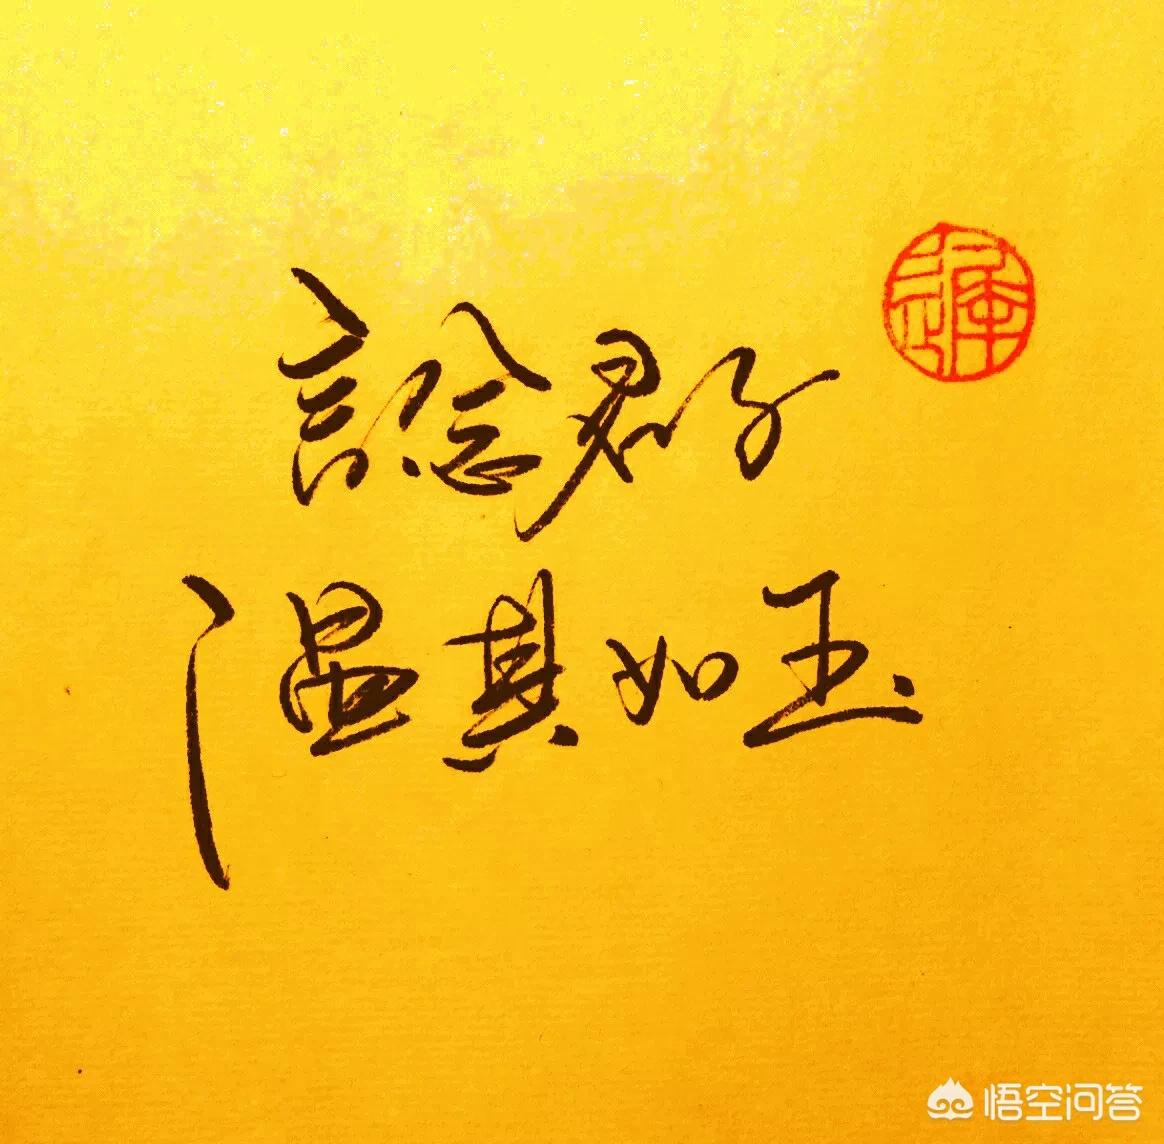 言念君子
温其如玉
悟空问答